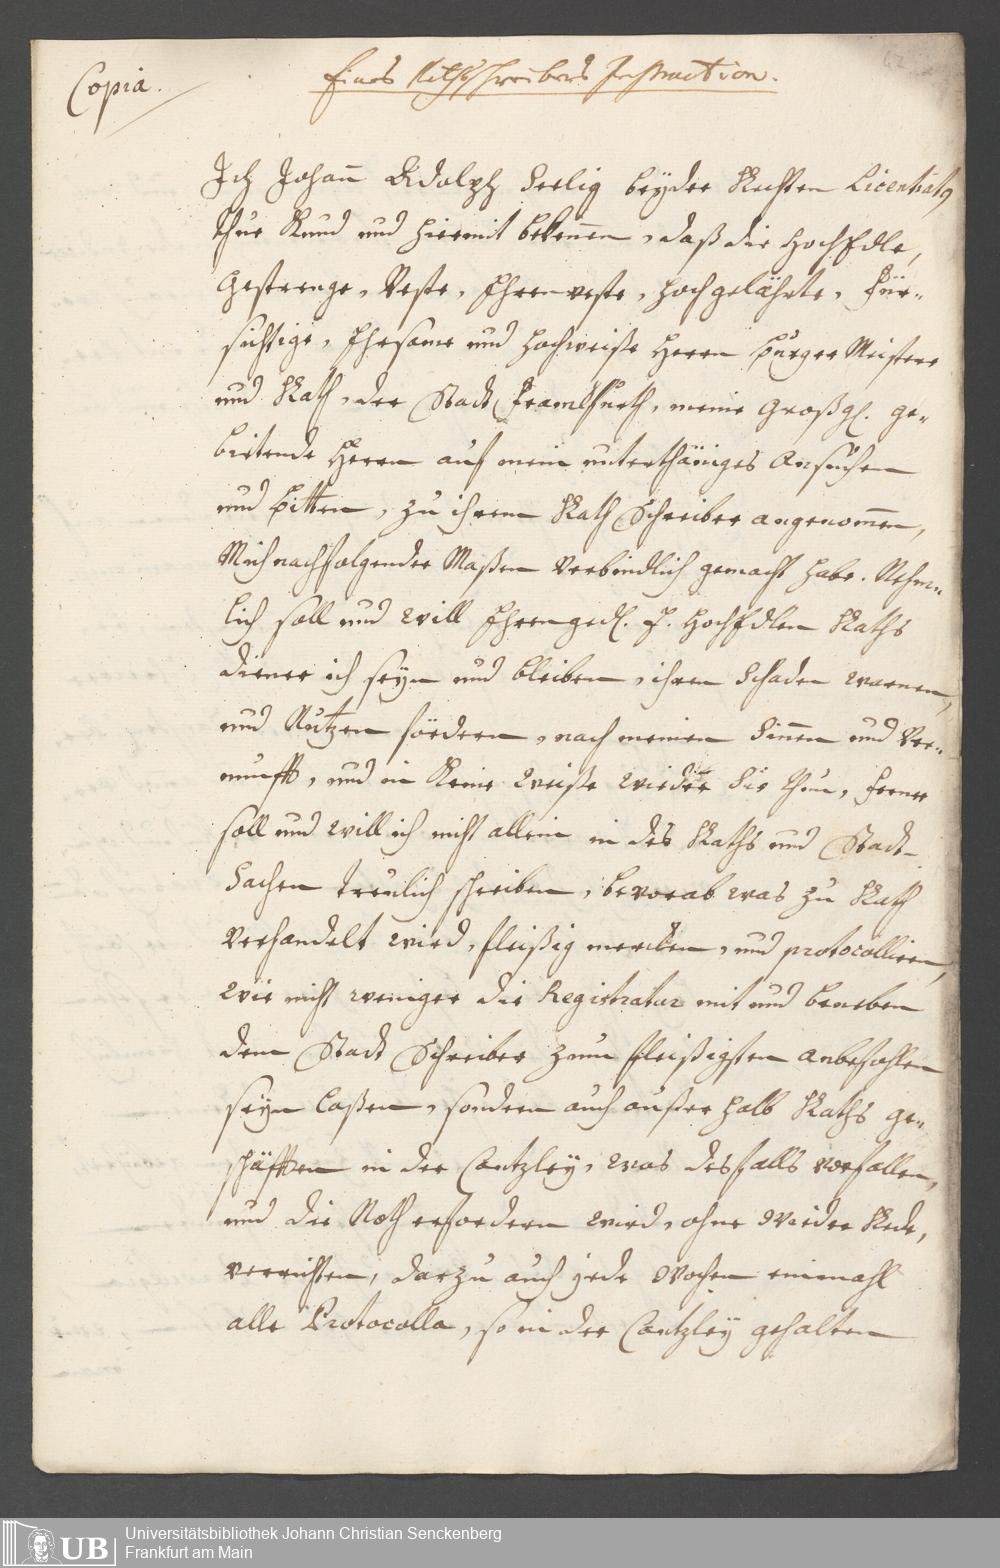 Copia.
Eines Rathschreibers Instruction.
Ich Johann Adolph Seelig beyder Rechten Licentiatus
thue Kund und hiermit bekennen, daß die HochEdle,
Gestrenge, Veste, Ehrenveste, Hochgelährte, Für-
sichtige, Ehrsame und Hochweiße Herrn Burger Meistere
und Rath, der Stadt Franckfurth, meine Großgl. ge-
bietende Herrn auf mein unterthäniges Ansuchen
und Bitten, zu ihrem Rath Schreiber angenommen,
Mich nachfolgender Maßen Verbindlich gemacht habe. Nehm-
lich soll und will Ehrengedl. E. HochEdlen Raths
diener ich seyn und bleiben, ihren Schaden warnen,
und Nutzen fördern, nach meinen Sinnen und Ver-
nunfft, und in Keine Weiße Wieder Sie thun, ferner
soll und will ich nicht allein in des Raths und Stadt
Sachen treulich schreiben, bevorab was zu Rath
Verhandelt wird, fleißig mercken, und protocolliren,
wie nicht weniger die Registratur mit und beneben
dem Stadt Schreiber zum fleißigsten anbefohlen
seyn laßen, sondern auch außer halb Raths ge-
schäfften in der Cantzley, was desfalls vorfallen,
und die Noth erfordern wird, ohne Wieder Rede,
verrichten, darzu auch jede Wochen einmahl
alle Protocolla, so in der Cantzley gehalten
UB
Universitätsbibliothek Johann Christian Senckenberg
Frankfurt am Main